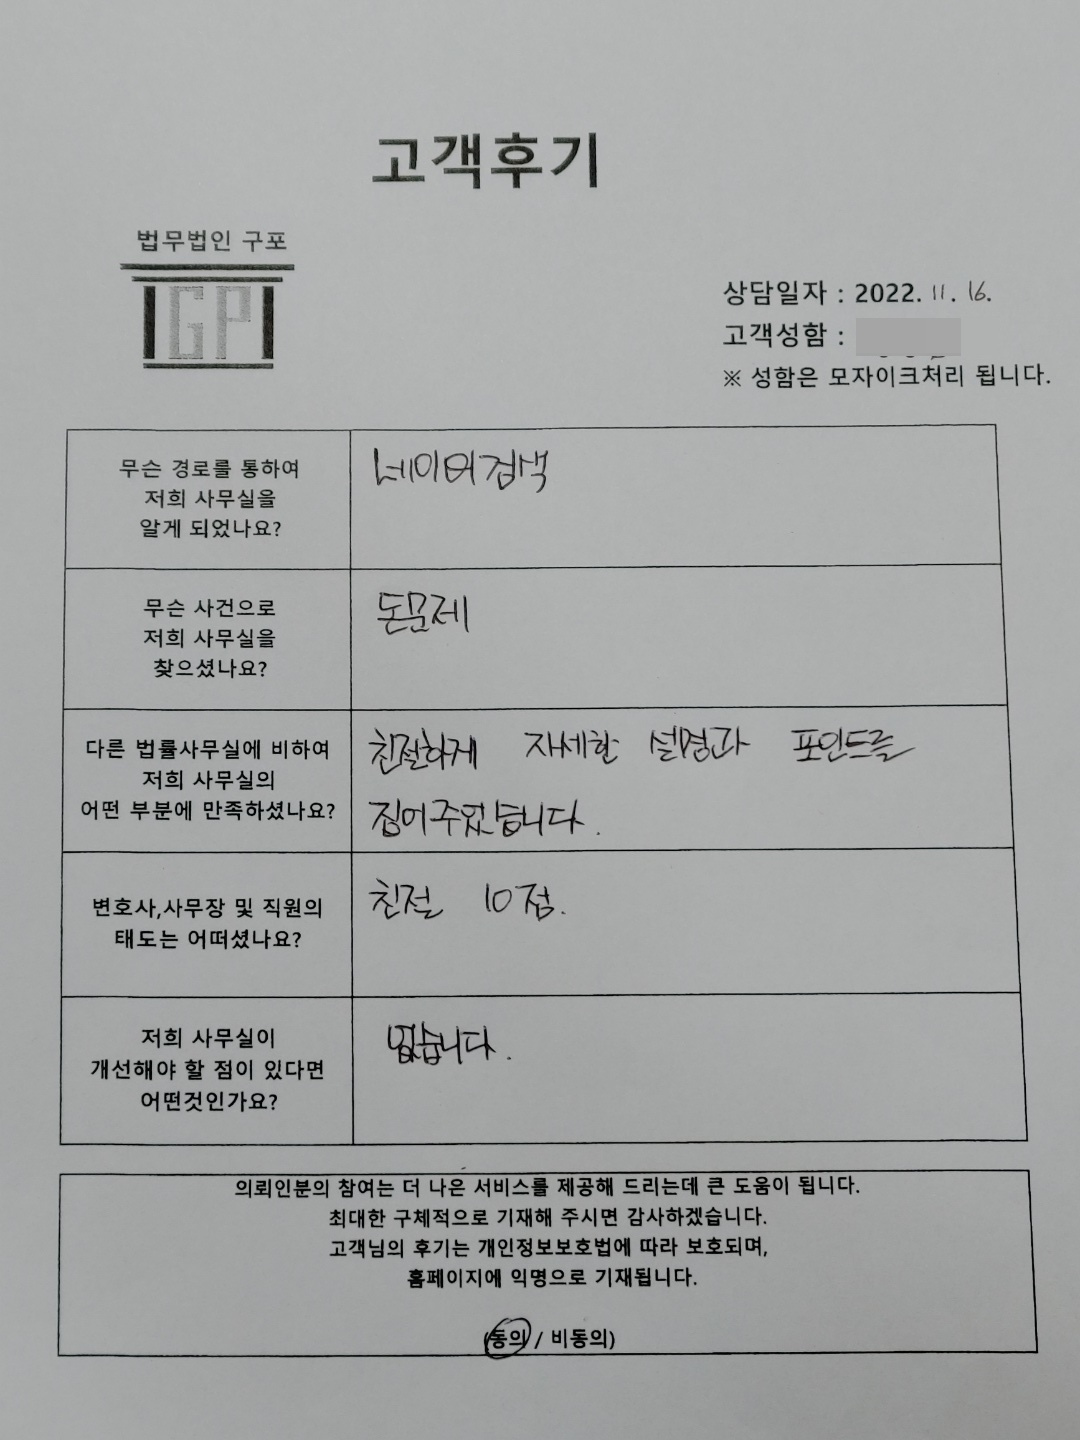 고객후기
법무법인 구포
GP
상담일자 : 2022. 11. 16.
고객성함 :
※ 성함은 모자이크처리 됩니다.
무슨 경로를 통하여
저희 사무실을
알게 되었나요?
네이버검색
무슨 사건으로
저희 사무실을
찾으셨나요?
돈문제
다른 법률사무실에 비하여
저희 사무실의
어떤 부분에 만족하셨나요?
친절하게 자세한 설명과 포인트를
집어주었습니다.
변호사,사무장 및 직원의
태도는 어떠셨나요?
친절 10점.
저희 사무실이
개선해야 할 점이 있다면
어떤것인가요?
없습니다.
의뢰인분의 참여는 더 나은 서비스를 제공해 드리는데 큰 도움이 됩니다.
최대한 구체적으로 기재해 주시면 감사하겠습니다.
고객님의 후기는 개인정보보호법에 따라 보호되며,
홈페이지에 익명으로 기재됩니다.
(동의 / 비동의)